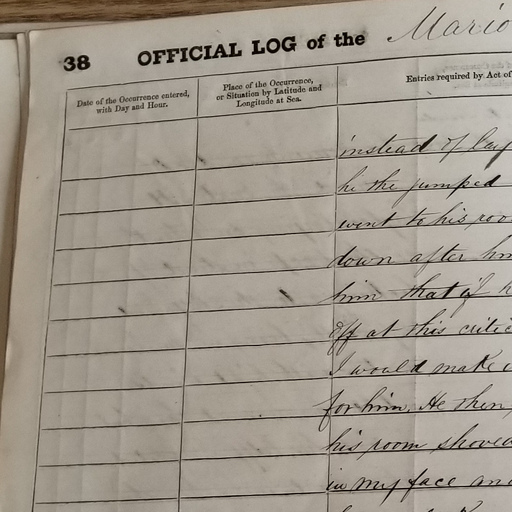 38 OFFICIAL LOG of the Mario
Date of the Occurrence entered,
with Day and Hour.
Place of the Occurrence,
or Situation by Latitude and
Longitude at Sea.
Entries required by Act of
instead of lay
he the jumped
went to his roo
down after him
him that if h
off at this critic
I would make
for him, He then
his room shoved
in my face and